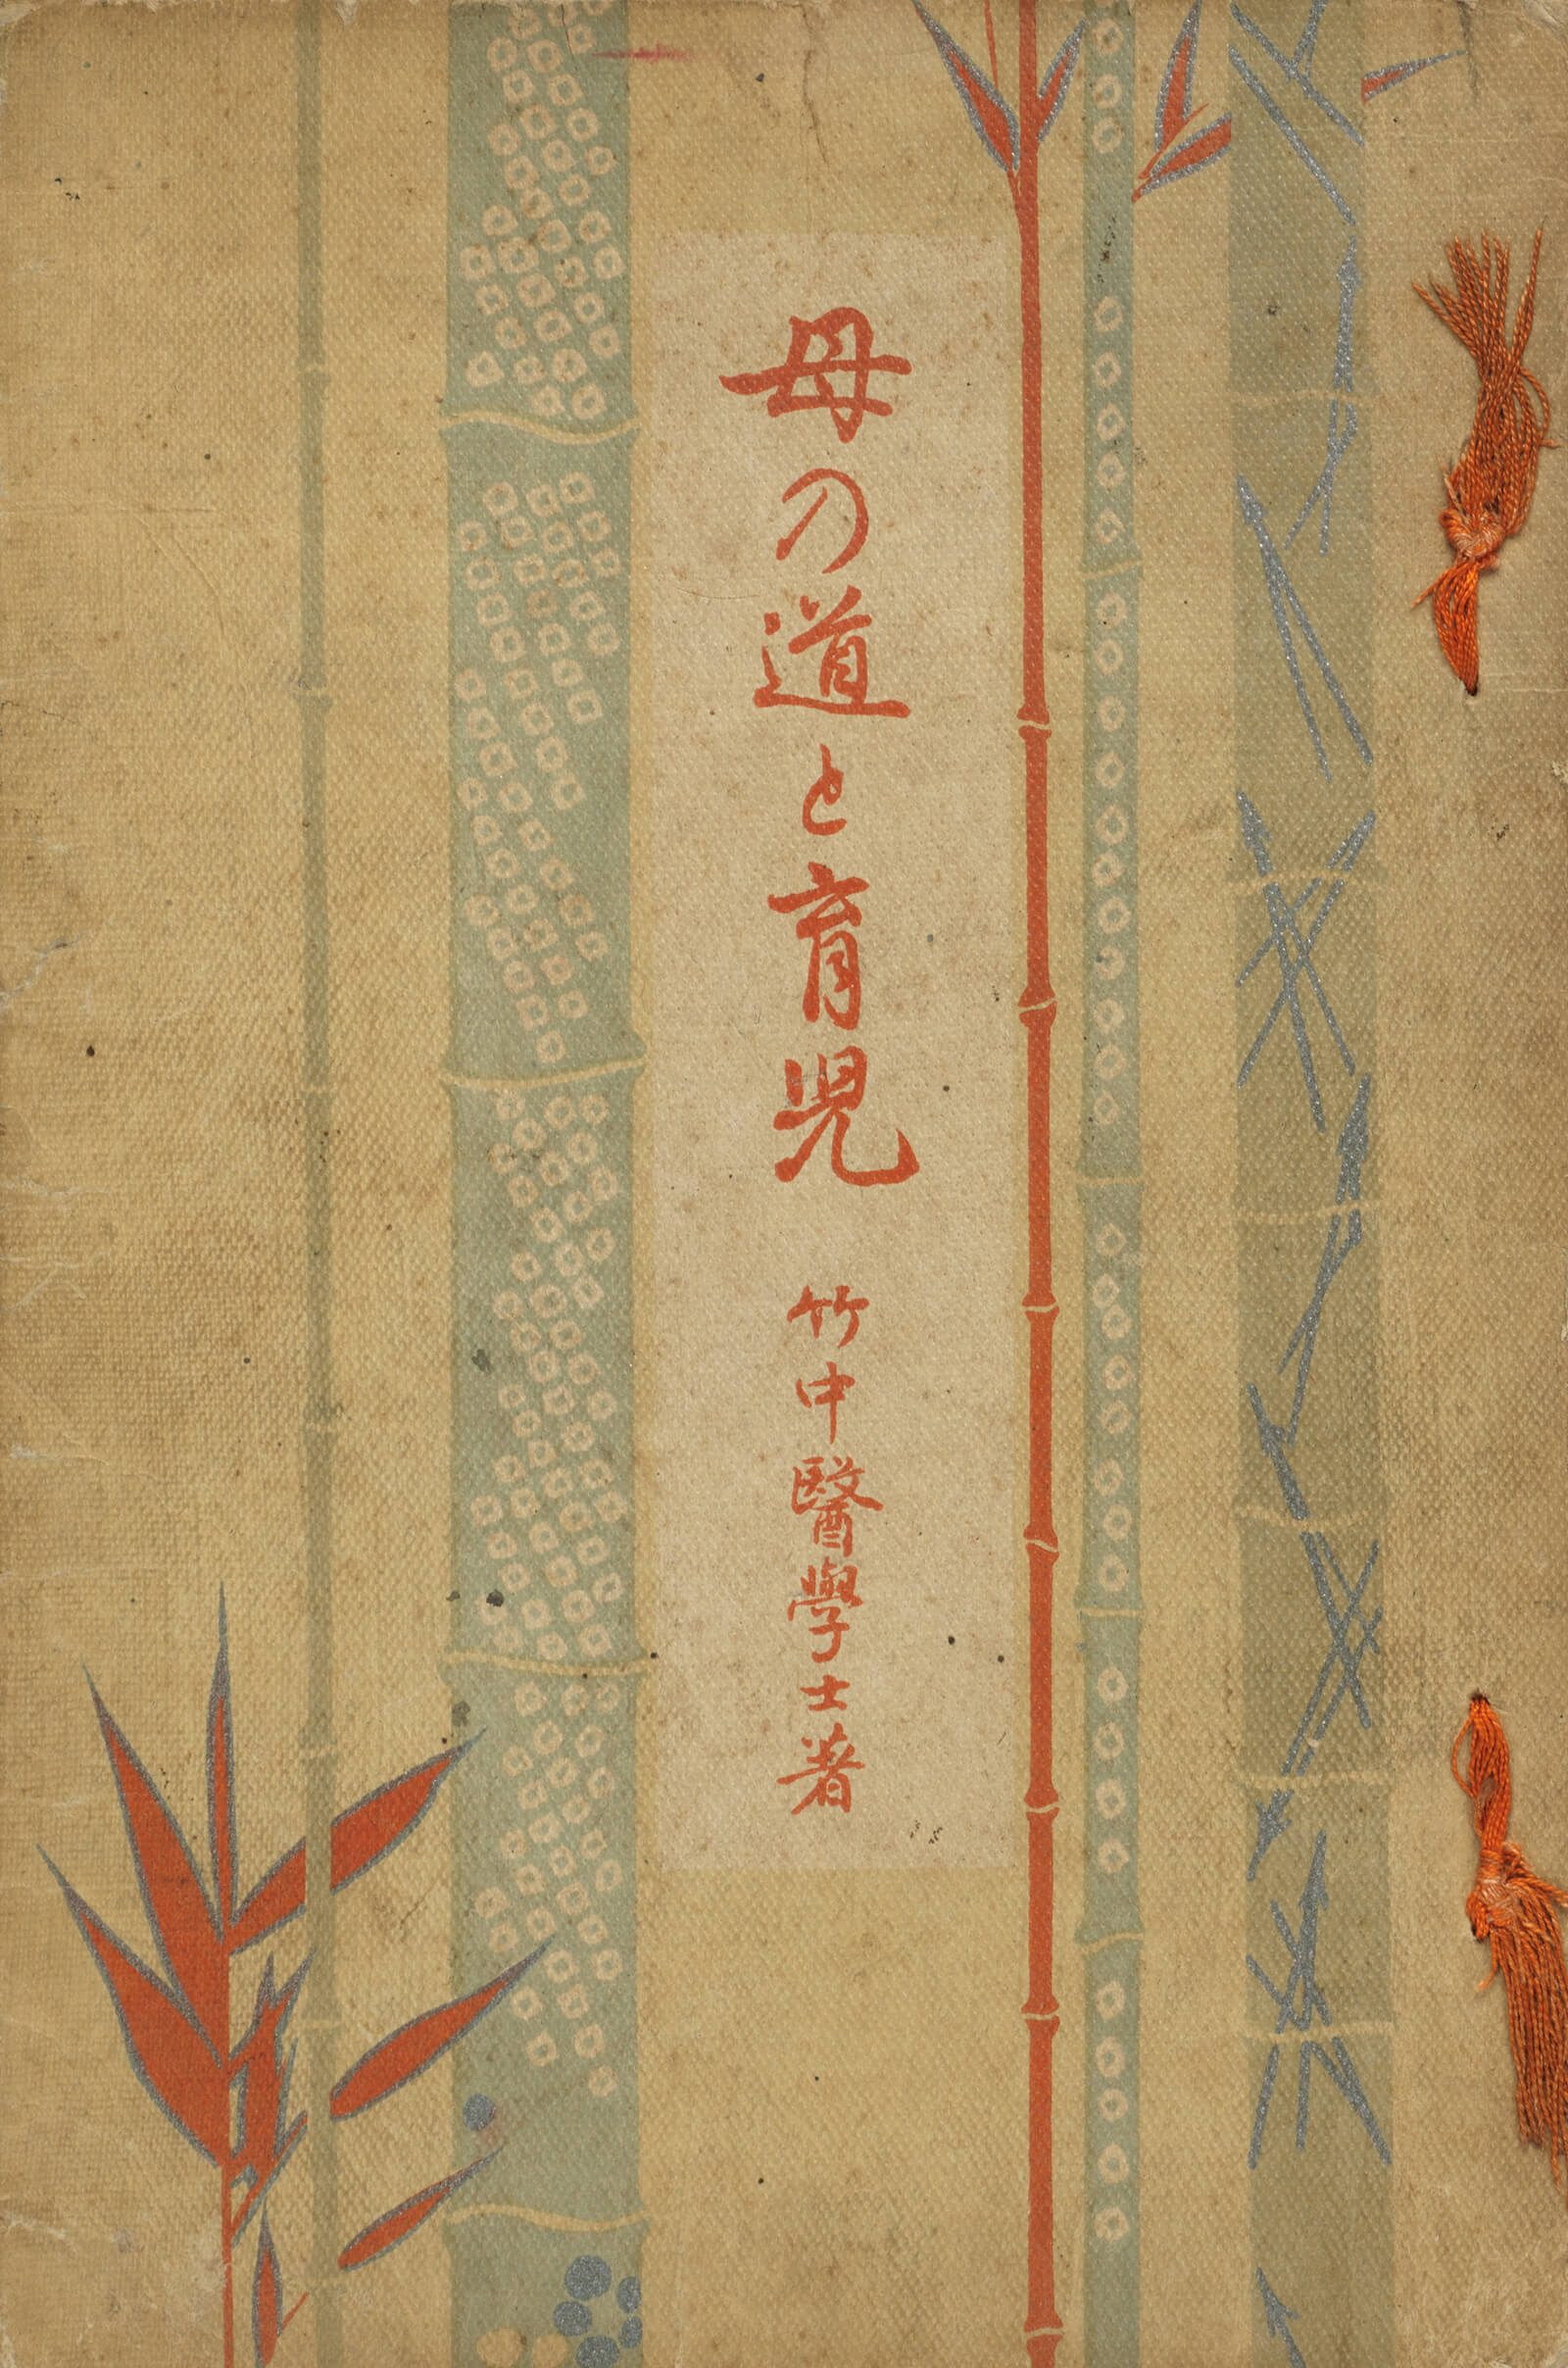 母の道と育児
竹中醫學士著